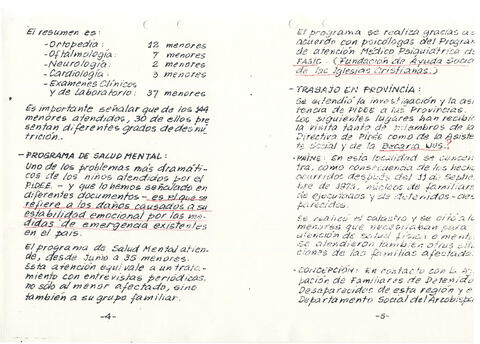 El resumen es:
-Ortopedia: 12 menores
-Oftalmología: 7 menores
-Neurología: 2 menores
-Cardiología: 3 menores
-Exámenes Clínicos
y de Laboratorio: 37 menores
Es importante señalar que de los 144
menores atendidos, 30 de ellos pre
sentan diferentes grados de desnu
trición.-
-PROGRAMA DE SALUD MENTAL:
Uno de los problemas más dramáti-
cos de los niños atendidos por el
PIDEE.- y que lo hemos señalado en
diferentes documentos- es el que se
refiere a los daños causados a su
estabilidad emocional por las me-
didas de emergencia existentes
en el país.
El programa de Salud Mental atien
de, desde Junio a 35 menores.
Esta atención equivale a un trata-
miento con entrevistas periódicas,
no sólo al menor afectado, sino
también a su grupo familiar.
-4-
El programa se realiza gracias a
acuerdo con psicólogas del Program
de atención Médico Psiquiátrica de
FASIC. (Fundación de Ayuda Social
de las Iglesias Cristianas.)
-TRABAJO EN PROVINCIA:
Se extendió la investigación y la asis
tencia de PIDEE a las Provincias.
Los siguientes lugares han recibid
la visita tanto de miembros de la
Directiva de PIDEE como de la Asisten
te Social y de la Becaria WUS.-
-PAINE: En esta localidad se concen
tra, como consecuencia de los hechos
ocurridos desde el 11 de Septiem
bre de 1973, núcleos de familiare
de ejecutados y de detenidos-des
parecidos.
Se realizó el catastro y se citó a lo
menores que necesitaban para
atención de salud física o mental
se atendieron también otras situa
ciones de las familias afectadas.
-CONCEPCION: En contacto con la Agru
pación de Familiares de Detenido
Desaparecidos de esta región y e
Departamento Social del Arzobispa
-5-